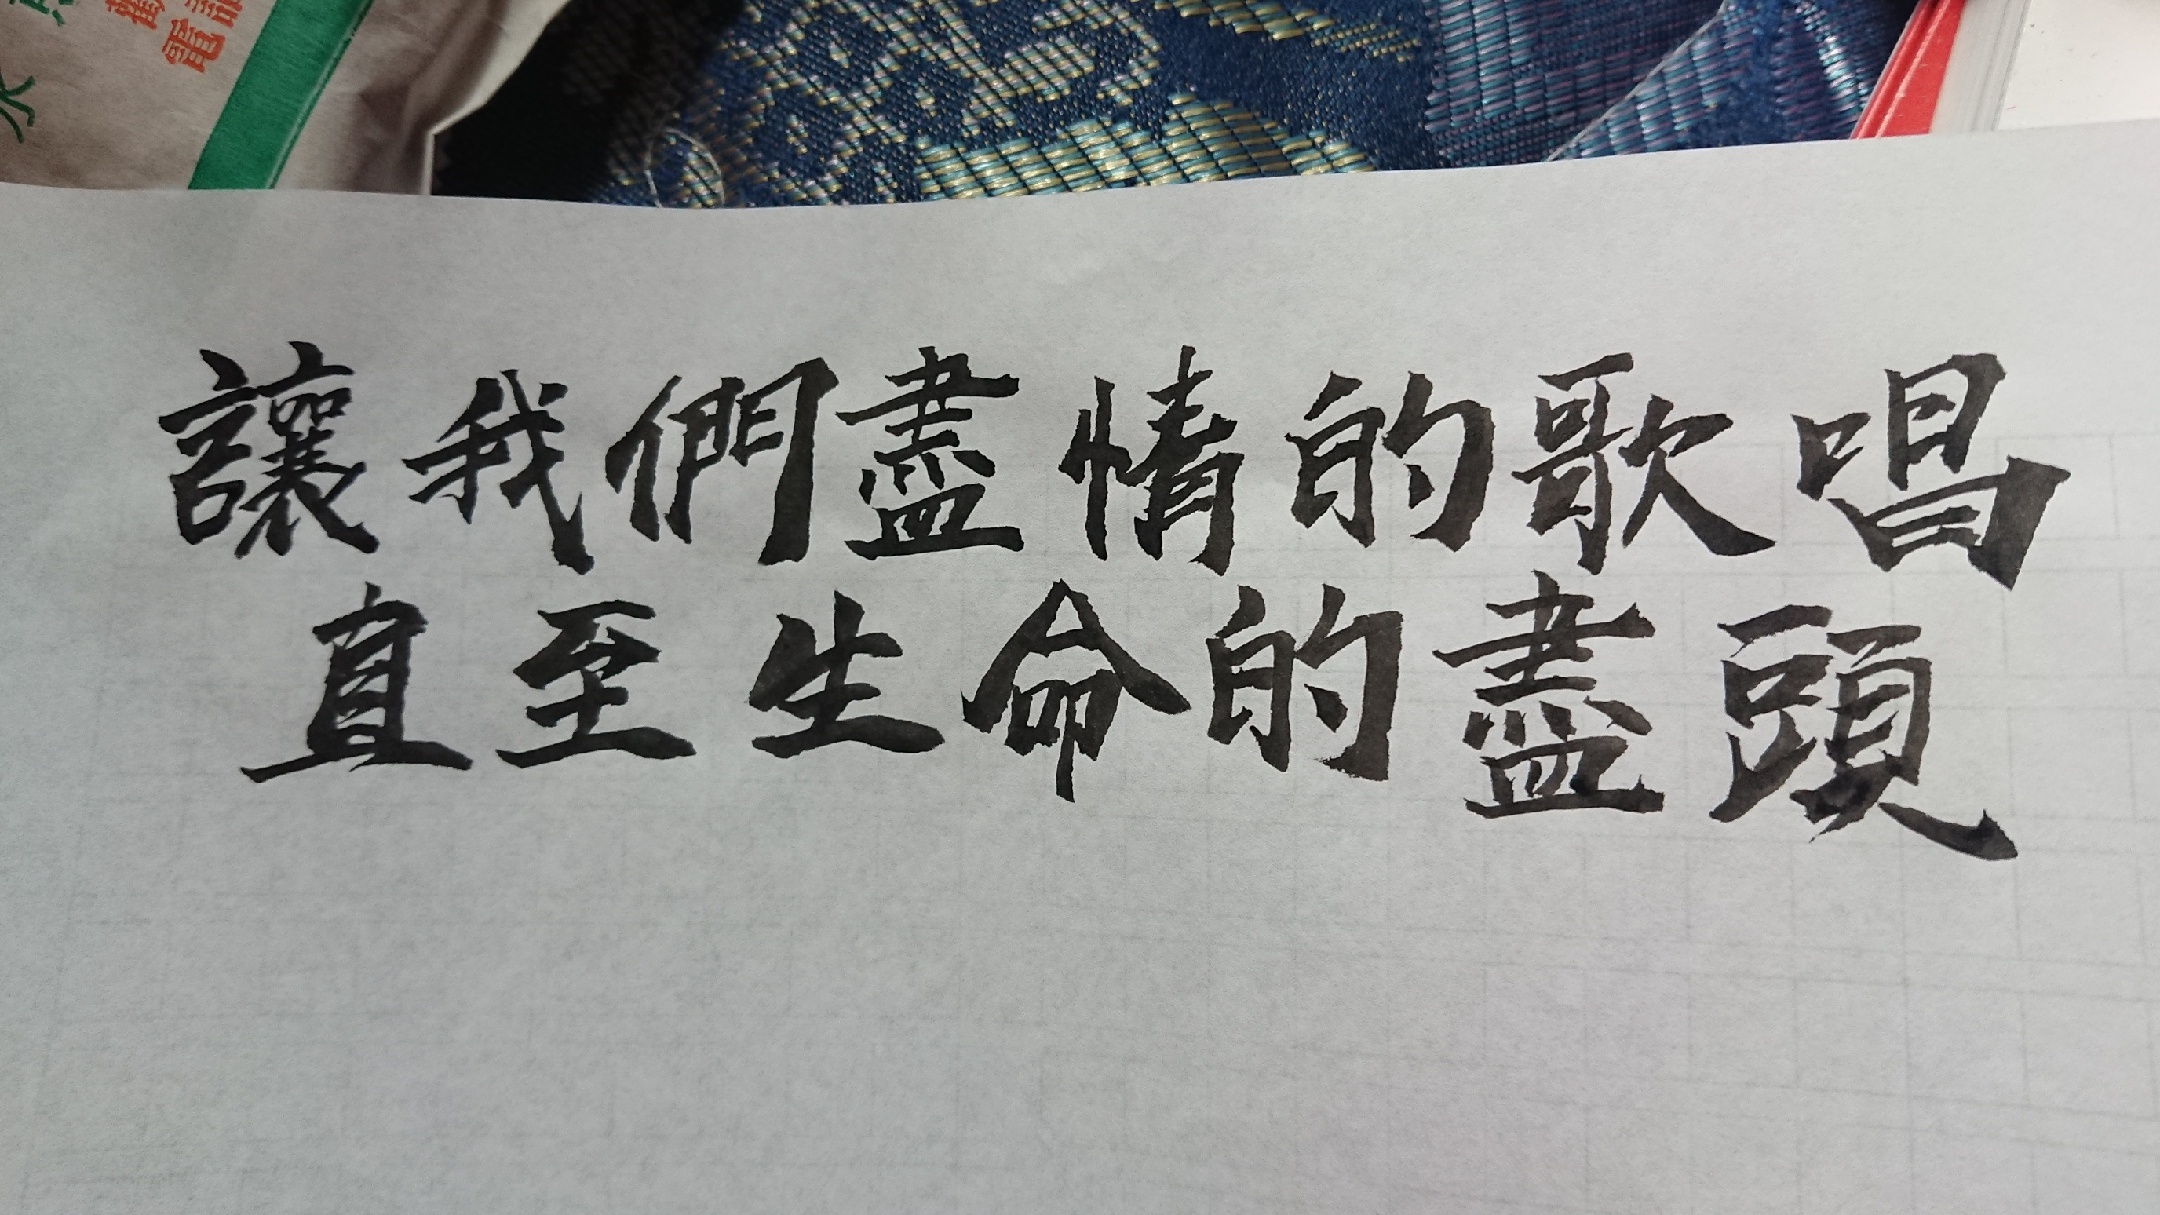 讓我們盡情的歌唱
直至生命的盡頭
電
水